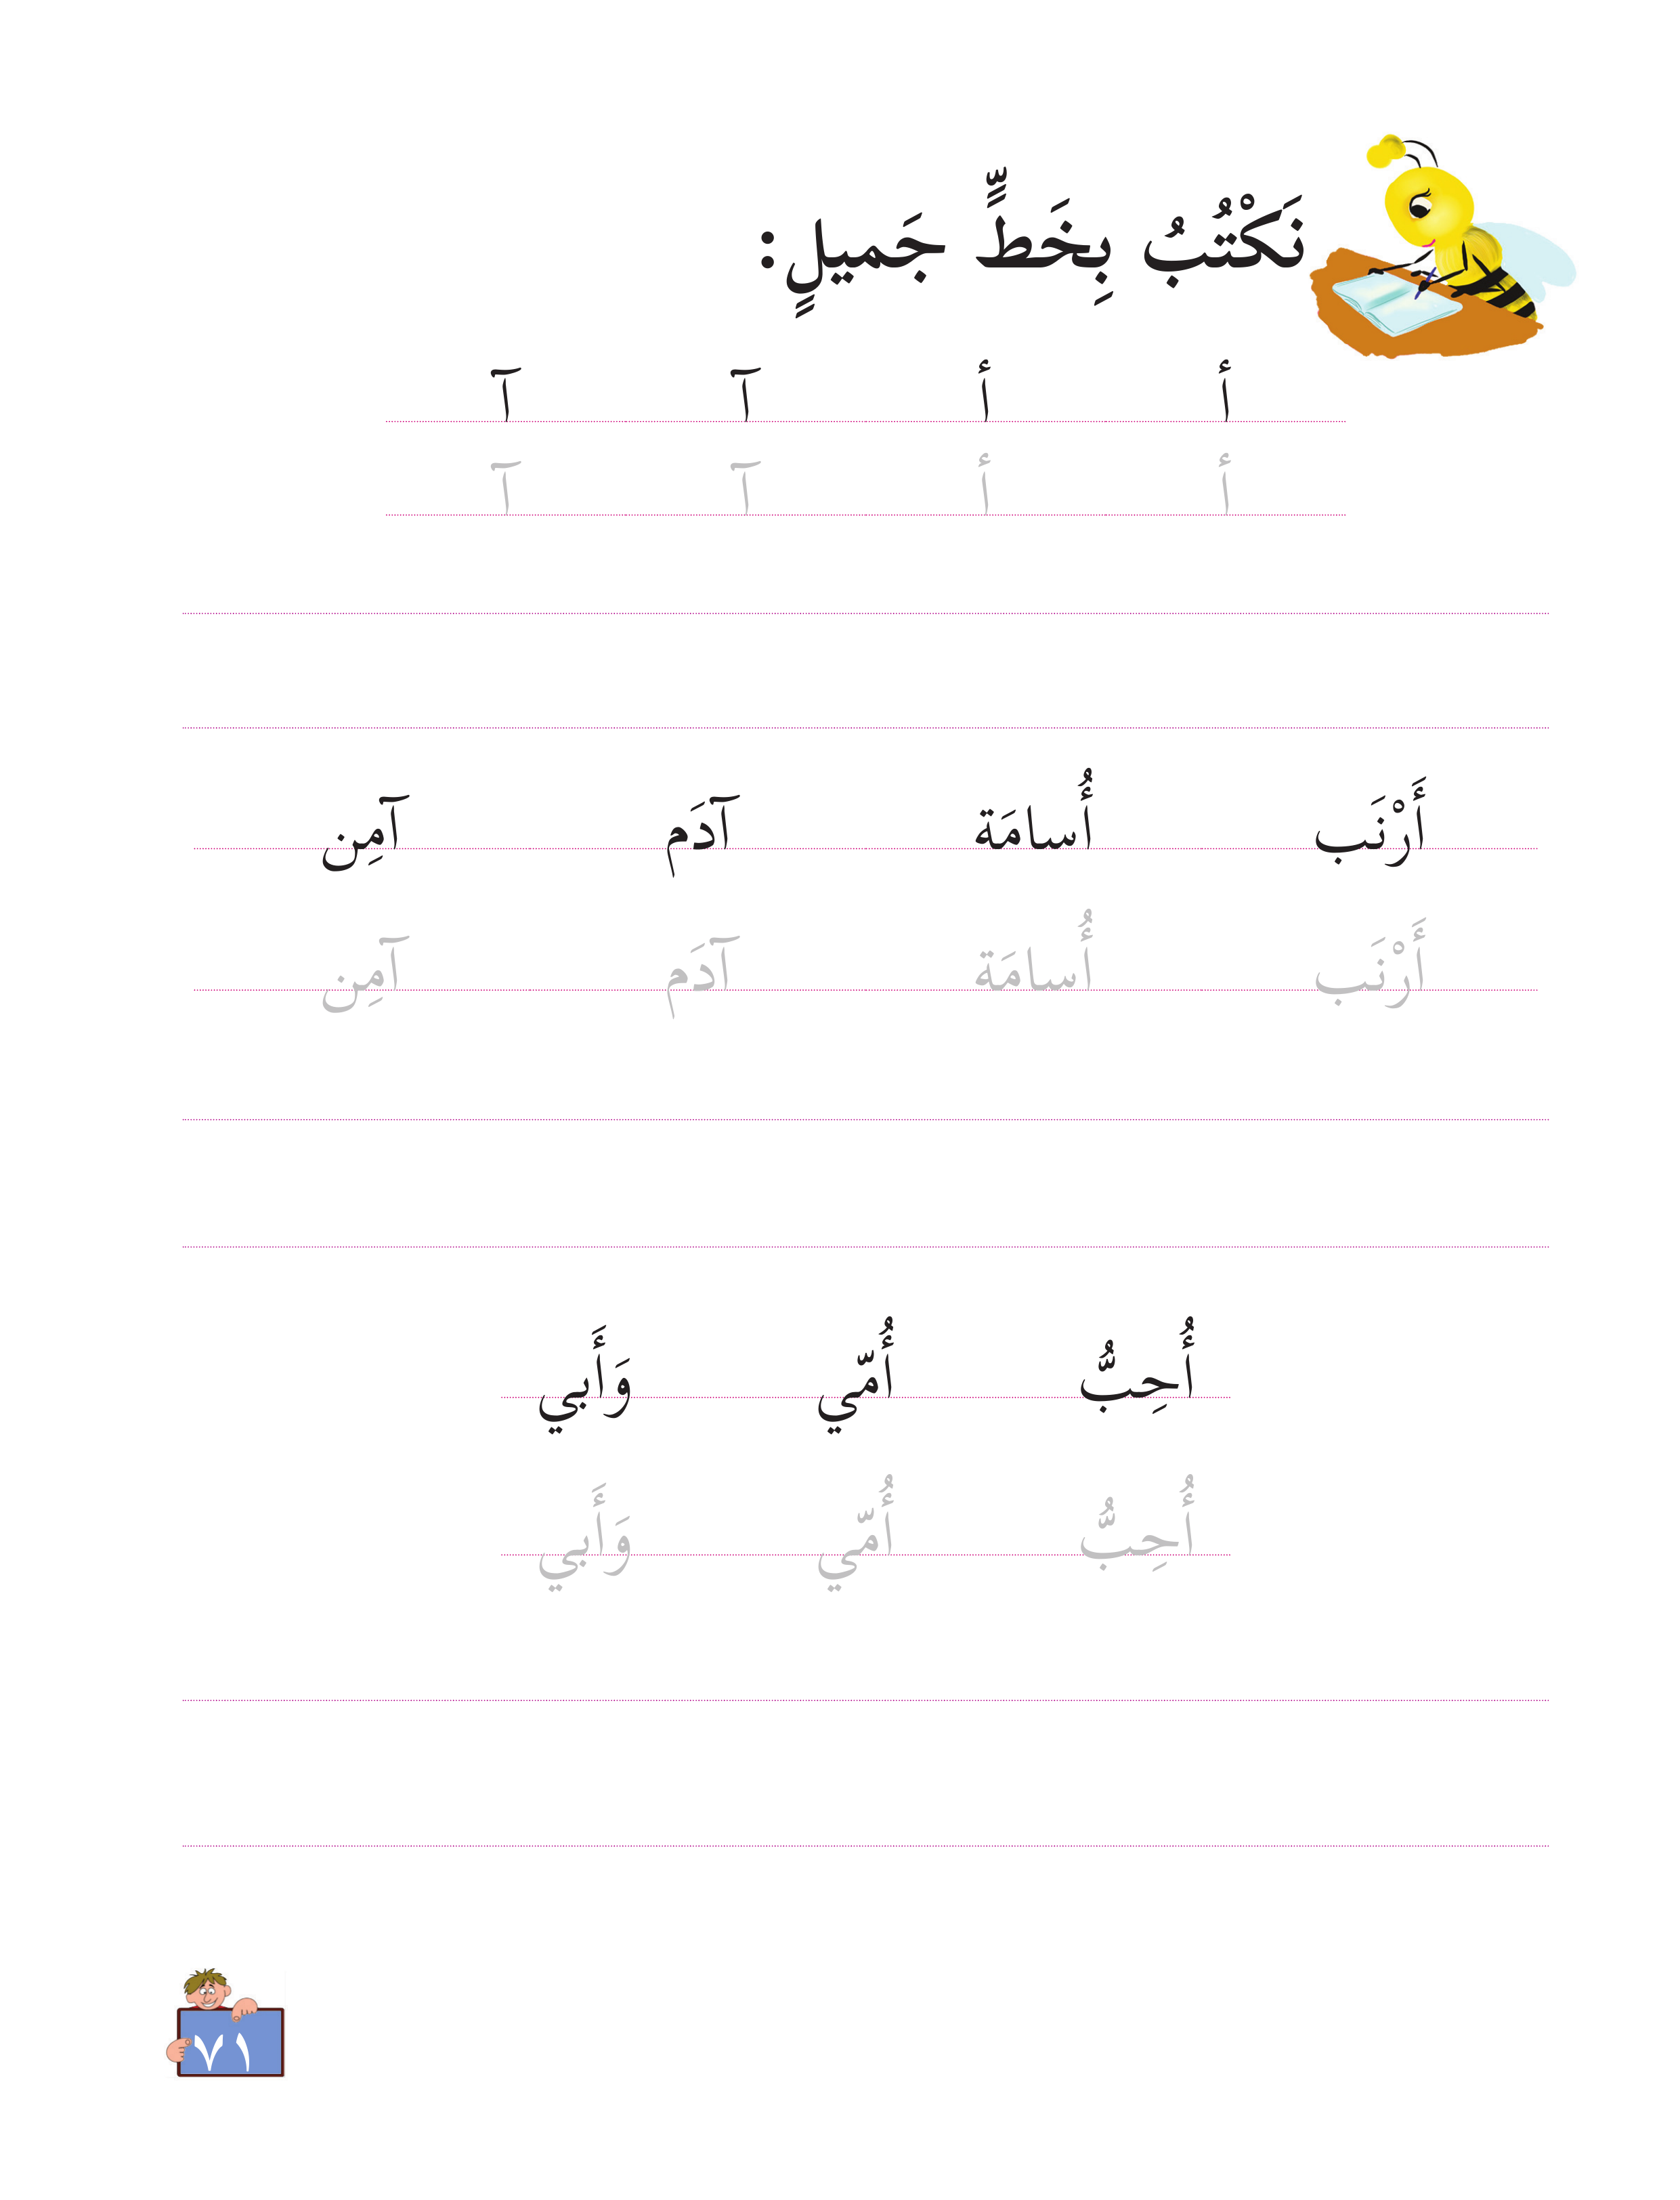 نَكْتُبُ بِخَطٍّ جَميلٍ:
أ أ آ آ
أ أ آ آ
أَرْنَب أُسامَة آدَم آمِن
أَرْنَب أُسامَة آدَم آمِن
أُحِبُّ أُمّي وَأَبي
أُحِبُّ أُمّي وَأَبي
٧١